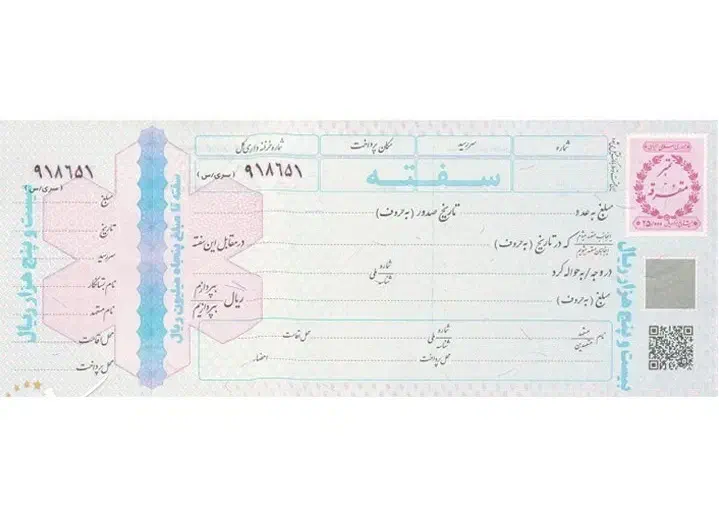 شماره
سررسید
مکان پرداخت
شماره خزانه داری کل
سفته
۹۱۸۶۵۱ (سری/س)
مبلغ به عدد
تاریخ صدور (به حروف)
که در تاریخ (به حروف)
در مقابل این سفته
در وجه/به حواله کرد
شماره ملی
شناسه
بپردازم
بپردازیم
ریال
مبلغ (به حروف)
نام متعهد
متعهدین
شماره ملی
شناسه
محل اقامت
محل پرداخت
امضاء
تمبر
متفرقه
بیست و پنج هزار ریال
سفته تا مبلغ پنجاه میلیون ریال
۹۱۸۶۵۱
(سری/س)
مبلغ
تاریخ
سررسید
نام بستانکار
نام متعهد
محل اقامت
محل پرداخت
بیست و پنج هزار ریال